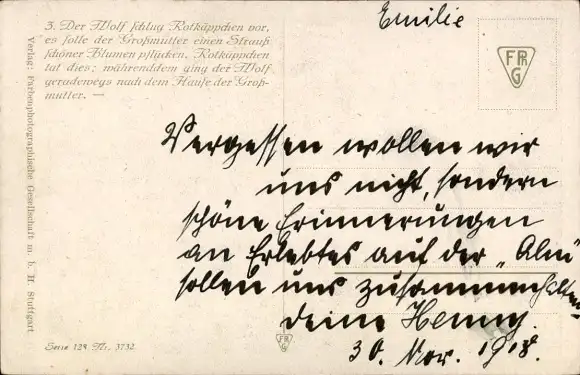 3. Der Wolf schlug Rotkäppchen vor,
es solle der Großmutter einen Strauß
schöner Blumen pflücken. Rotkäppchen
tut dies; währenddem ging der Wolf
geradewegs nach dem Hause der Groß-
mutter. —
Emilie
FPH
G
Verlag: Farbenphotographische Gesellschaft m. b. H. Stuttgart.
Vergessen wollen wir
uns nicht, sondern
schöne Erinnerungen
an Erlebtes auf der „Alm"
sollen uns zusammenhalten
deine Henny.
30. Nov. 1918.
Serie 129 Nr. 3732